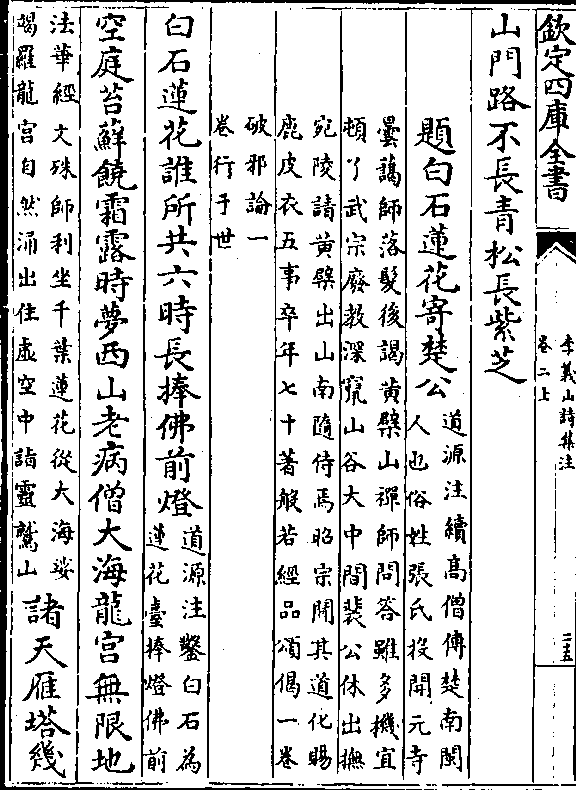 欽定四庫全書
李義山詩集注
卷二上
二五
山門路不長青松長紫芝
題白石蓮花寄楚公
道源注續高僧傳楚南閩
人也俗姓張氏投開元寺
曇藹師落髮後謁黄檗山禪師問答雖多機宜
頓了武宗廢教深竄山谷大中間裴公休出撫
宛陵請黄檗出山南隨侍焉昭宗聞其道化賜
鹿皮衣五事卒年七十著般若經品頌偈一卷
破邪論一
卷行于世
白石蓮花誰所共六時長捧佛前燈
道源注鑿白石為
蓮花臺捧燈佛前
空庭苔蘚饒霜露時夢西山老病僧大海龍宫無限地
法華經文殊師利坐千葉蓮花從大海娑
竭羅龍宫自然涌出住虚空中詣靈鷲山
諸天雁塔幾